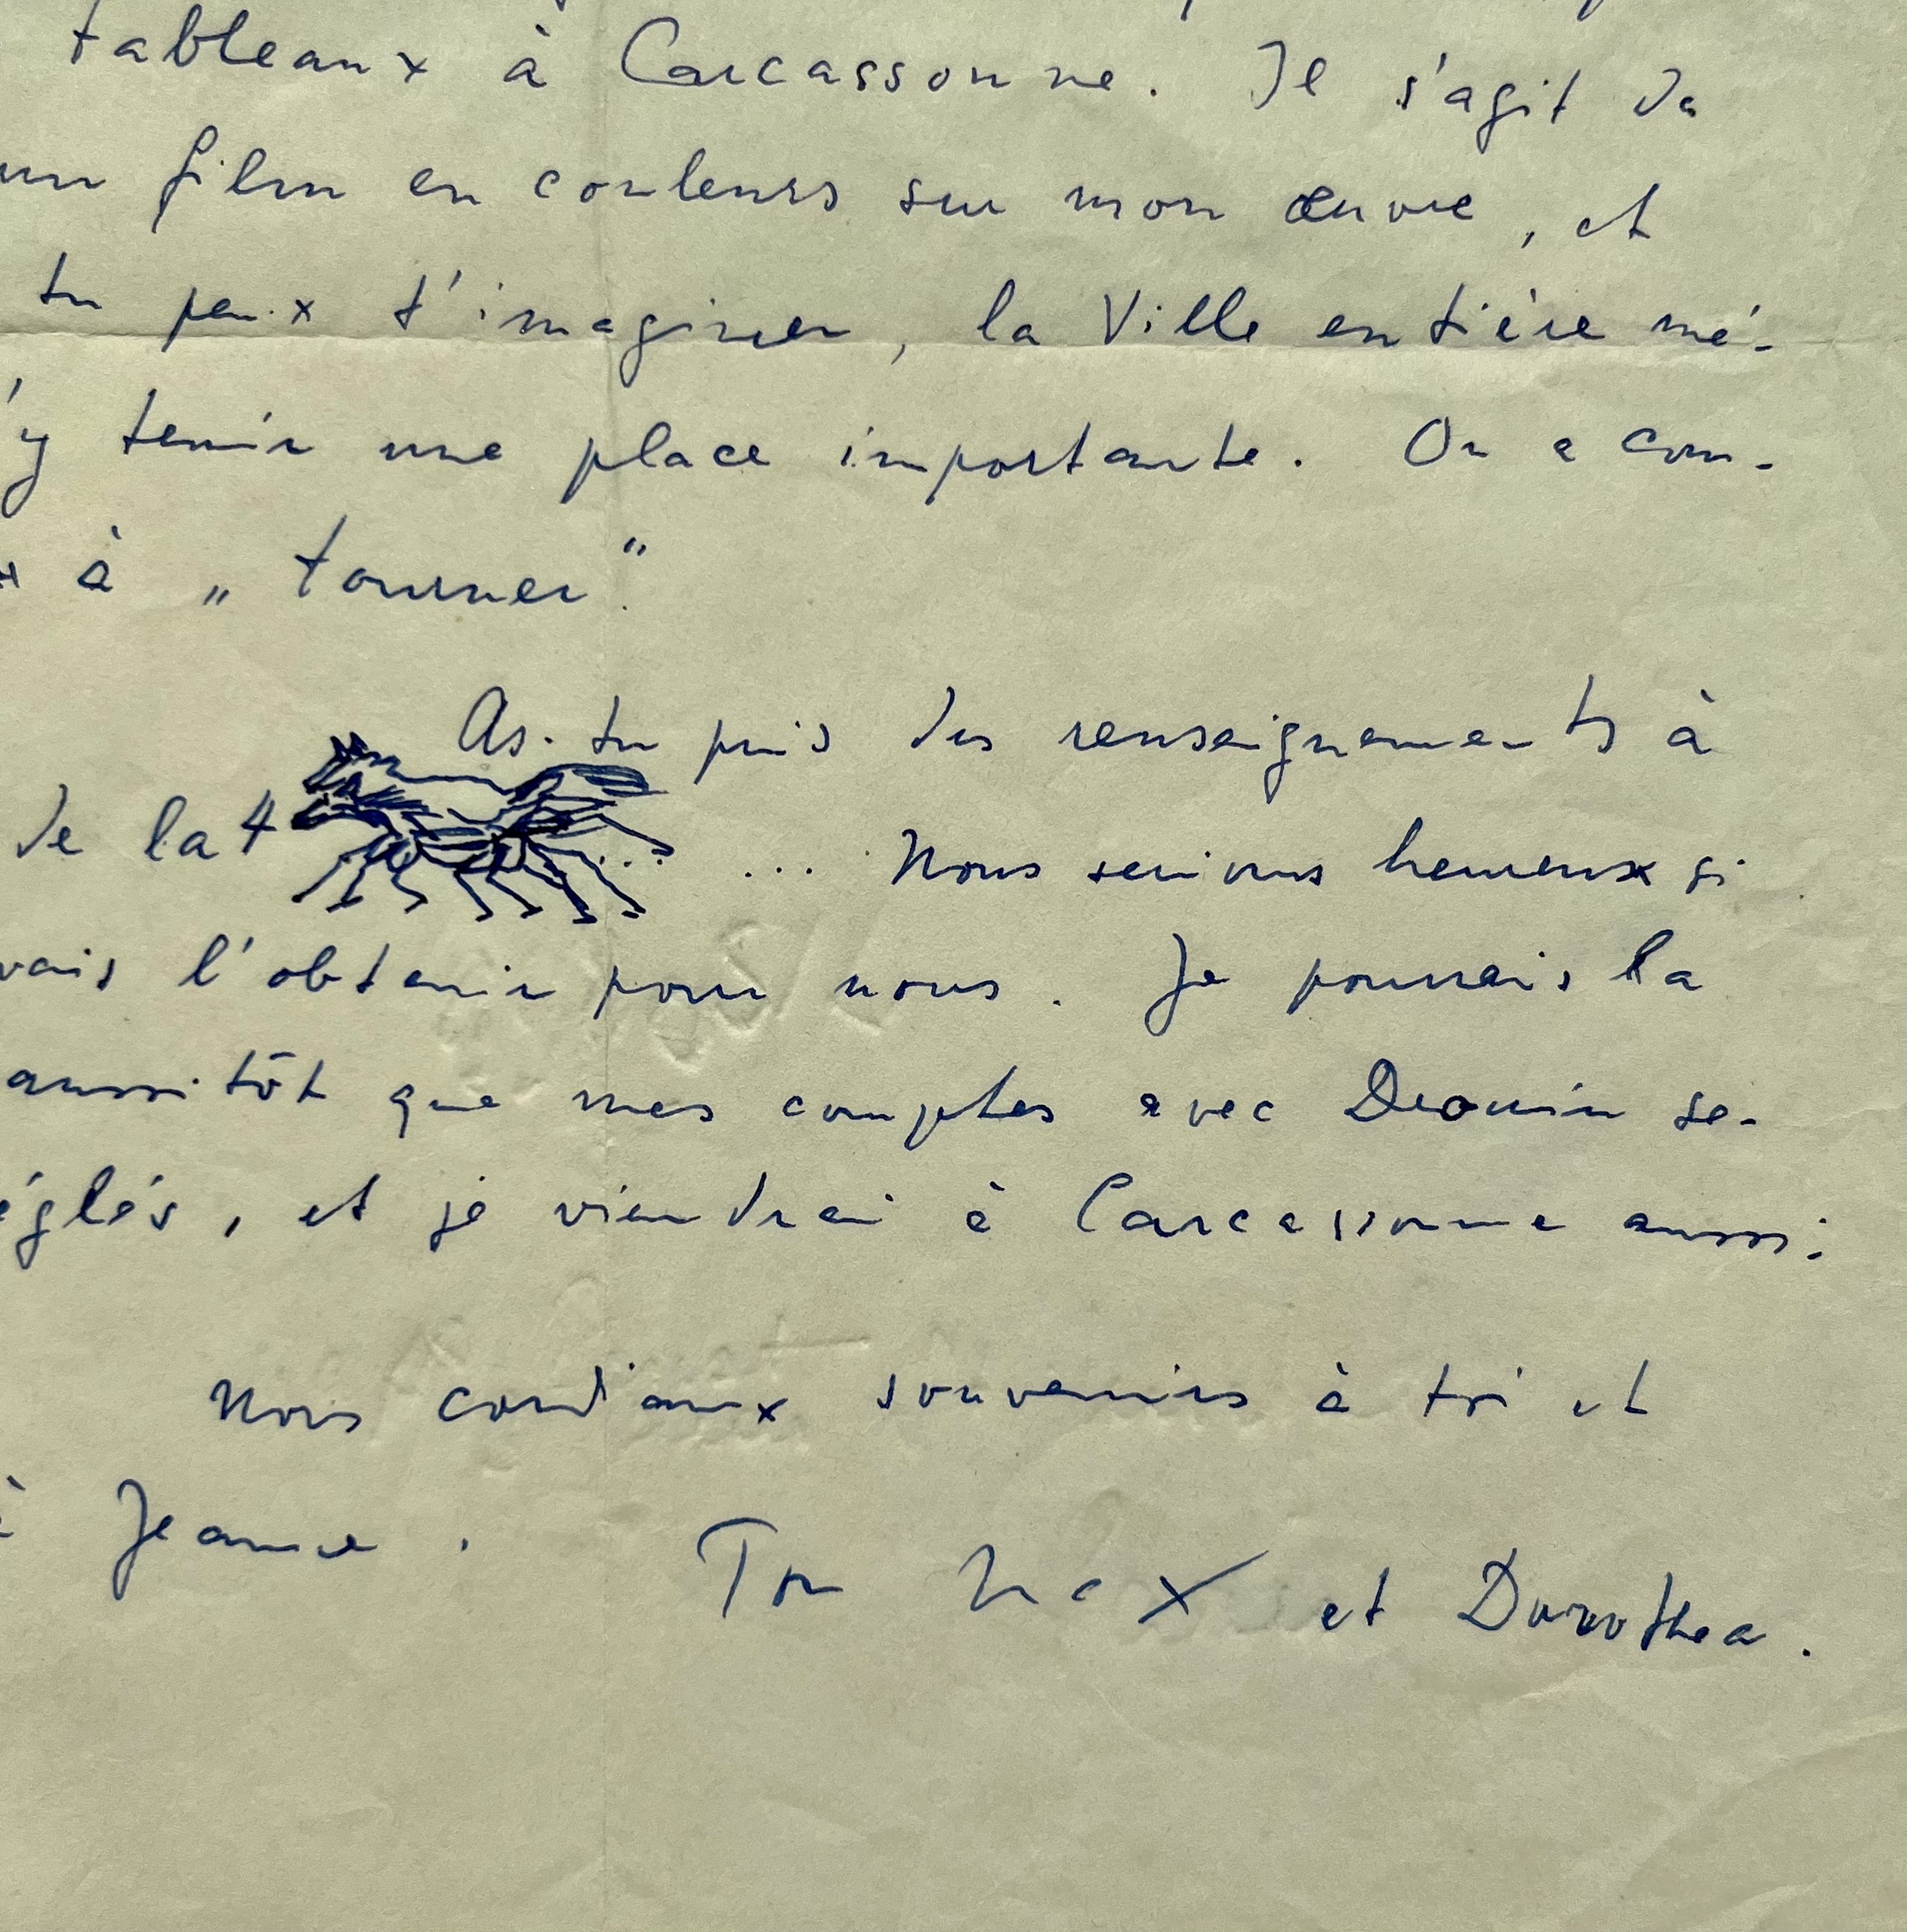 tableaux à Carcassonne. Il s'agit de
un film en couleurs sur mon œuvre, et
tu peux t'imaginer, la Ville entière mé-
'y tenir une place importante. On a com-
à „tourner".
As-tu pris des renseignements à
de la 4 ... ... Nous serions heureux si
vais l'obtenir pour nous. Je pourrais la
aussitôt que mes comptes avec Drouin se-
églés, et je viendrai à Carcassonne aussi.
Nos cordiaux souvenirs à toi et
à Jeanne.
Ton Max et Dorothea.